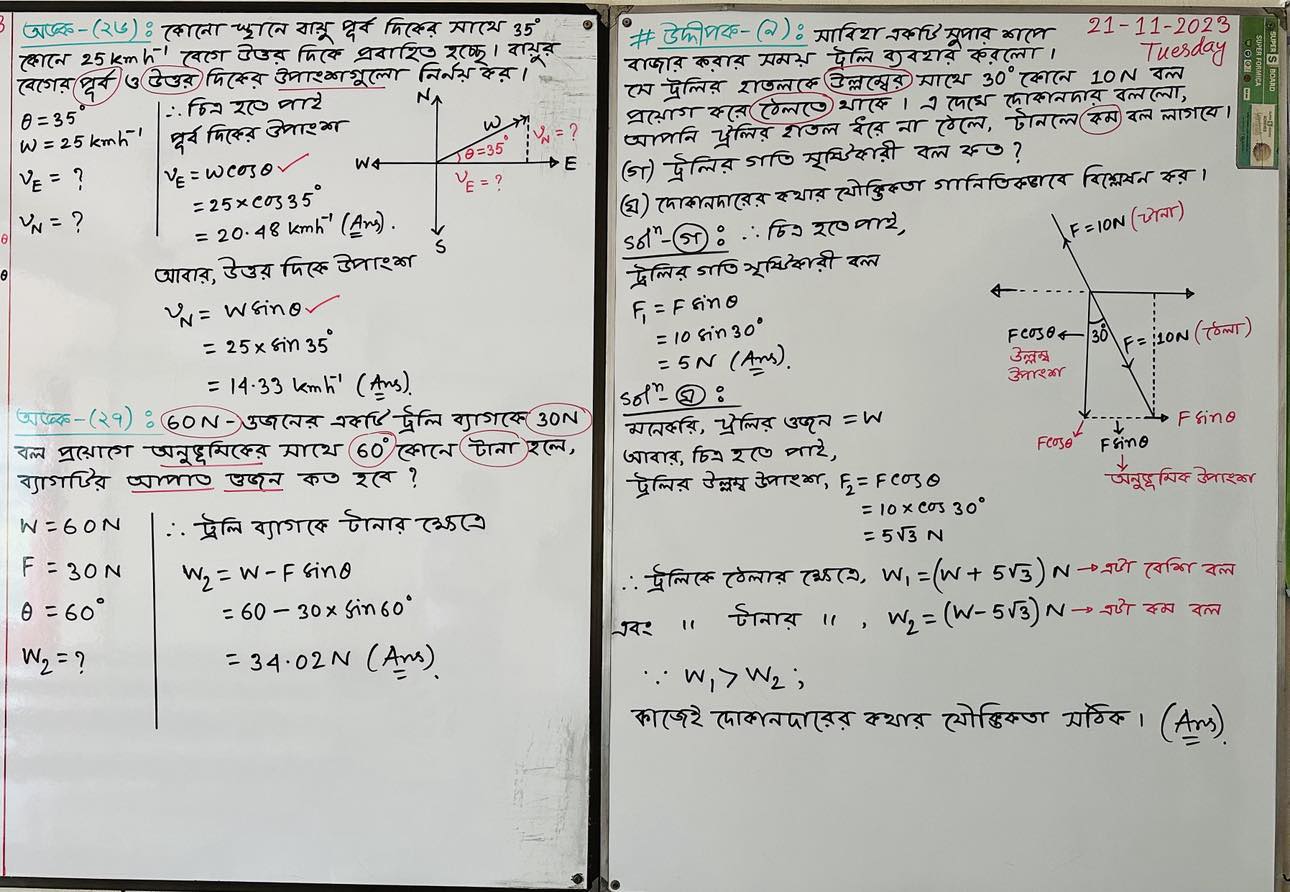 অংক-(২৬): কোনো স্থানে বায়ু পূর্ব দিকের সাথে 35°
কোনে 25 kmh⁻¹ বেগে উত্তর দিকে প্রবাহিত হচ্ছে। বায়ুর
বেগের পূর্ব ও উত্তর দিকের উপাংশগুলো নির্নয় কর।
θ = 35°
W = 25 kmh⁻¹
v_E = ?
v_N = ?
∴ চিত্র হতে পাই
পূর্ব দিকের উপাংশ
v_E = W cosθ ✓
= 25 × cos 35°
= 20.48 kmh⁻¹ (Ans).
N
W
v_N = ?
θ = 35°
W
E
v_E = ?
S
আবার, উত্তর দিকে উপাংশ
v_N = W sinθ ✓
= 25 × sin 35°
= 14.33 kmh⁻¹ (Ans).
অংক-(২৭): 60N-ওজনের একটি ট্রলি ব্যাগকে 30N
বল প্রয়োগে অনুভূমিকের সাথে 60° কোনে টানা হলে,
ব্যাগটির আপাত ওজন কত হবে?
W = 60 N
F = 30 N
θ = 60°
W₂ = ?
∴ ট্রলি ব্যাগকে টানার ক্ষেত্রে
W₂ = W - F sinθ
= 60 - 30 × sin 60°
= 34.02 N (Ans).
21-11-2023
Tuesday
# উদ্দীপক-(২): সাবিহা একটি সুপার শপে
বাজার করার সময় ট্রলি ব্যবহার করলো।
সে ট্রলির হাতলকে উল্লম্বের সাথে 30° কোনে 10N বল
প্রয়োগ করে ঠেলতে থাকে। এ দেখে দোকানদার বললো,
আপনি ট্রলির হাতল ধরে না ঠেলে, টানলে কম বল লাগবে।
(গ) ট্রলির গতি সৃষ্টিকারী বল কত?
(ঘ) দোকানদারের কথার যৌক্তিকতা গানিতিকভাবে বিশ্লেষন কর।
solⁿ-(গ): ∴ চিত্র হতে পাই,
ট্রলির গতি সৃষ্টিকারী বল
F₁ = F sinθ
= 10 sin 30°
= 5 N (Ans).
F = 10N (টানা)
F cosθ
উল্লম্ব
উপাংশ
30°
F = 10N (ঠেলা)
F sinθ
F cosθ
F sinθ
অনুভূমিক উপাংশ
solⁿ-ঘ:
মনেকরি, ট্রলির ওজন = W
আবার, চিত্র হতে পাই,
ট্রলির উল্লম্ব উপাংশ, F₂ = F cosθ
= 10 × cos 30°
= 5√3 N
∴ ট্রলিকে ঠেলার ক্ষেত্রে, W₁ = (W + 5√3) N → এটা বেশি বল
এবং " টানার ", W₂ = (W - 5√3) N → এটা কম বল
∵ W₁ > W₂ ;
কাজেই দোকানদারের কথার যৌক্তিকতা সঠিক। (Ans).
SUPER S BOARD
SUPER FORMICA